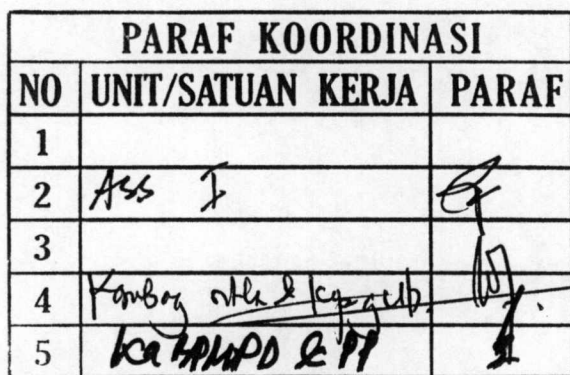 PARAF KOORDINASI
NO UNIT/SATUAN KERJA PARAF
1
2 Ass I
3
4 Kambag
5 Ka BPMPD & PP